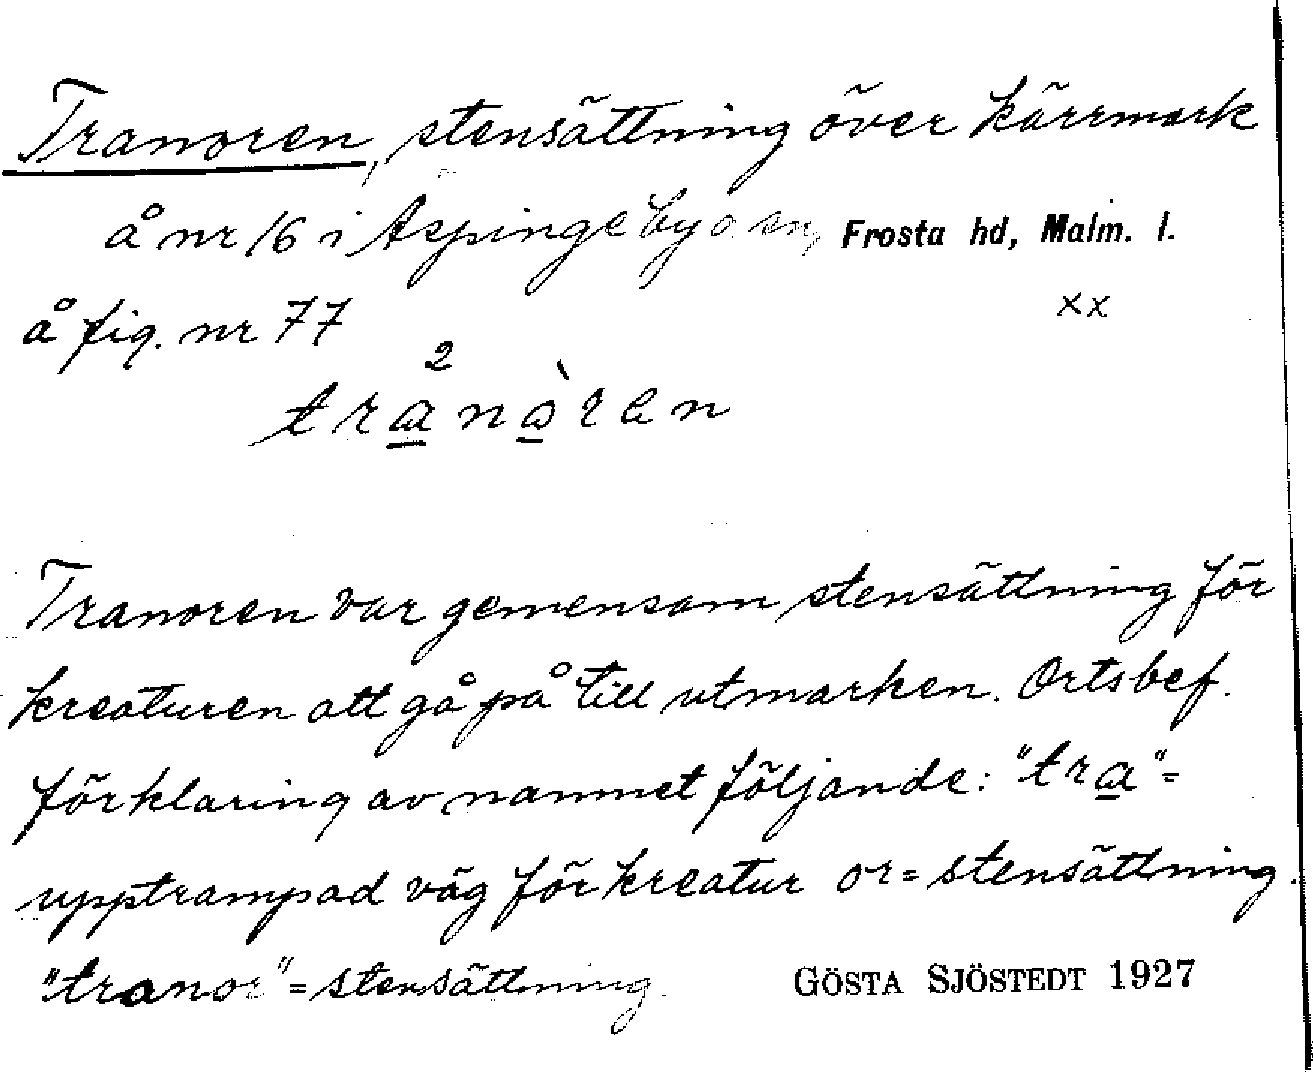 Tranoren, stensättning över kärrmark
å nr 16 i Äspinge by Frosta hd, Malm. l.
å fig. nr 77 xx
2
tranòren
Tranoren var gemensam stensättning för
kreaturen att gå på till utmarken. Ortsbef.
förklaring av namnet följande: "tra"=
upptrampad väg för kreatur or= stensättning.
"tranor"= stensättning. GÖSTA SJÖSTEDT 1927